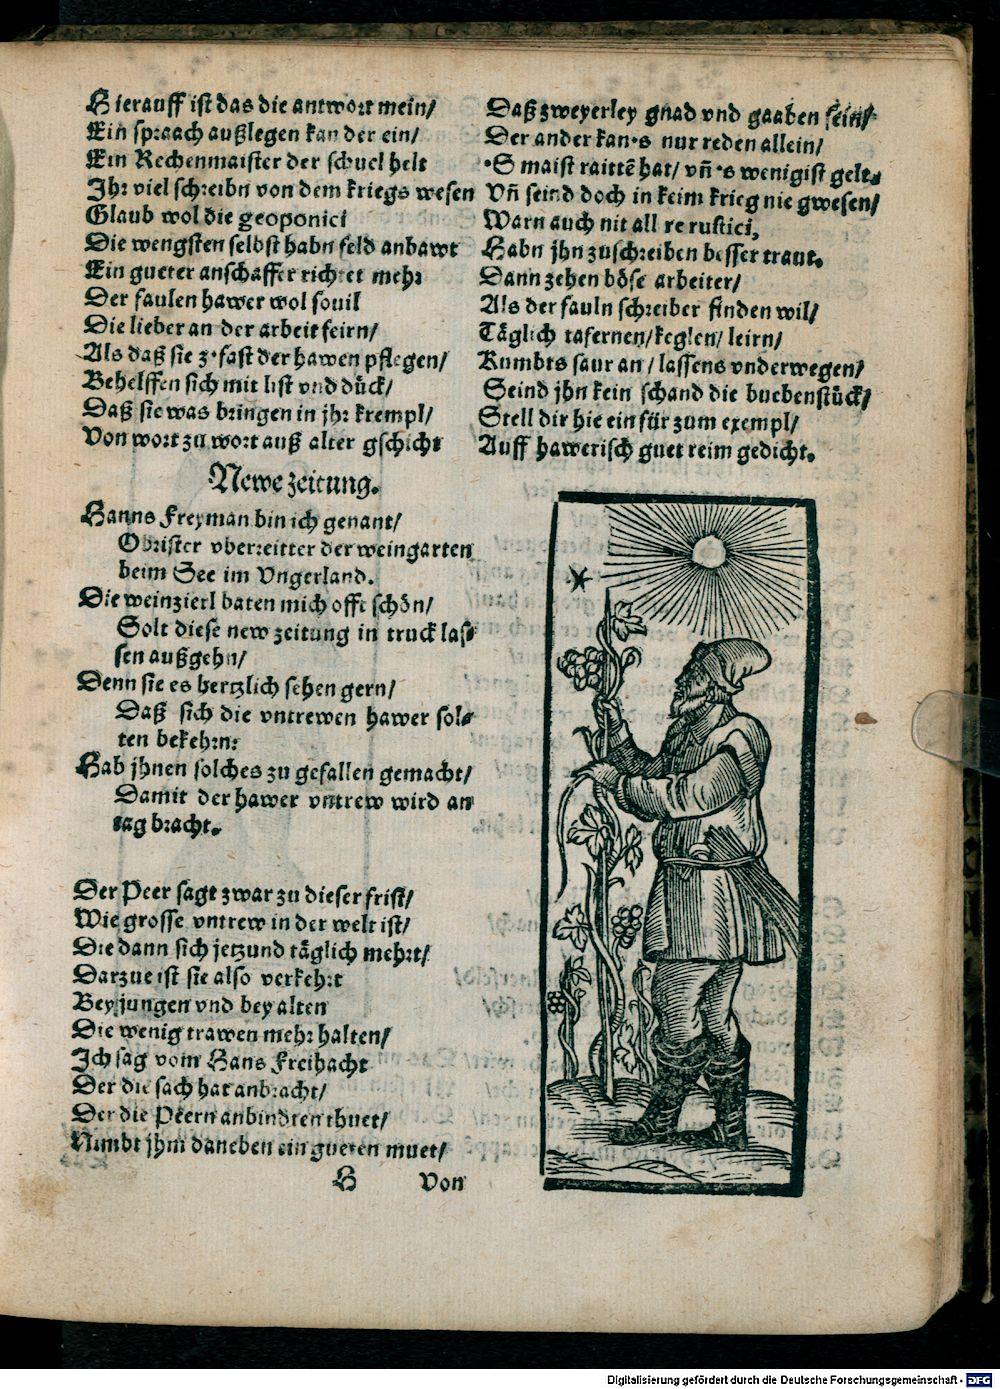 Hierauff ist das die antwort mein/
Ein spraach außlegen kan der ein/
Ein Rechenmaister der schuel helt
Jhr viel schreibn von dem kriegs wesen
Glaub wol die geoponici
Die wengsten selbst habn feld anbawt
Ein gueter anschaffer richtet mehr
Der faulen hawer wol souil
Die lieber an der arbeit feirn/
Als daß sie z·fast der hawen pflegen/
Behelffen sich mit list vnd dück/
Daß sie was bringen in jhr krempl/
Von wort zu wort auß alter gschicht
Daß zweyerley gnad vnd gaaben sein/
Der ander kan·s nur reden allein/
·S maist raittē hat/ vñ ·s wenigist gelt.
Vñ seind doch in keim krieg nie gwesen/
Warn auch nit all re rustici,
Habn jhn zuschreiben besser traut.
Dann zehen böse arbeiter/
Als der fauln schreiber finden wil/
Täglich tafernen/keglen/ leirn/
Kumbts saur an/ lassens vnderwegen/
Seind jhn kein schand die buebenstück/
Stell dir hie ein für zum exempl/
Auff hawerisch guet reim gedicht.
Newe zeitung.
Hanns Freyman bin ich genant/
Obrister vberreitter der weingarten
beim See im Vngerland.
Die weinzierl baten mich offt schön/
Solt diese new zeitung in truck las-
sen außgehn/
Denn sie es hertzlich sehen gern/
Daß sich die vntrewen hawer sol-
ten bekehrn:
Hab jhnen solches zu gefallen gemacht/
Damit der hawer vntrew wird an
tag bracht.
Der Peer sagt zwar zu dieser frist/
Wie grosse vntrew in der welt ist/
Die dann sich jetzund täglich mehrt/
Darzue ist sie also verkehrt
Bey jungen vnd bey alten
Die wenig trawen mehr halten/
Ich sag vom Hans Freihacht
Der die sach hat anbracht/
Der die Peern anbindten thuet/
Nimbt jhm daneben ein gueten muet/
H Von
Digitalisierung gefördert durch die Deutsche Forschungsgemeinschaft - DFG